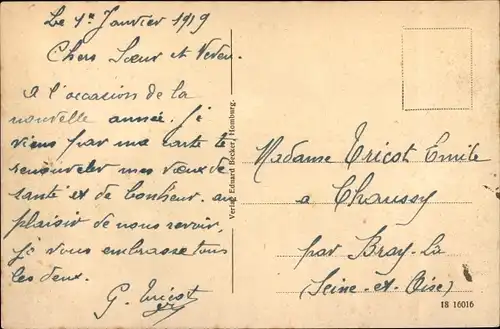 Le 1er Janvier 1919
Chers Sœur et Neveu.
A l'occasion de la
nouvelle année. Je
viens par ma carte te
renouveler mes vœux de
santé et de bonheur. au
plaisir de nous revoir,
je vous embrasse tous
les deux.
G. Tricot
Verlag Eduard Becker, Homburg.
Madame Tricot Emile
a Chaussy
par Bray-la
(Seine-et-Oise)
18 16016